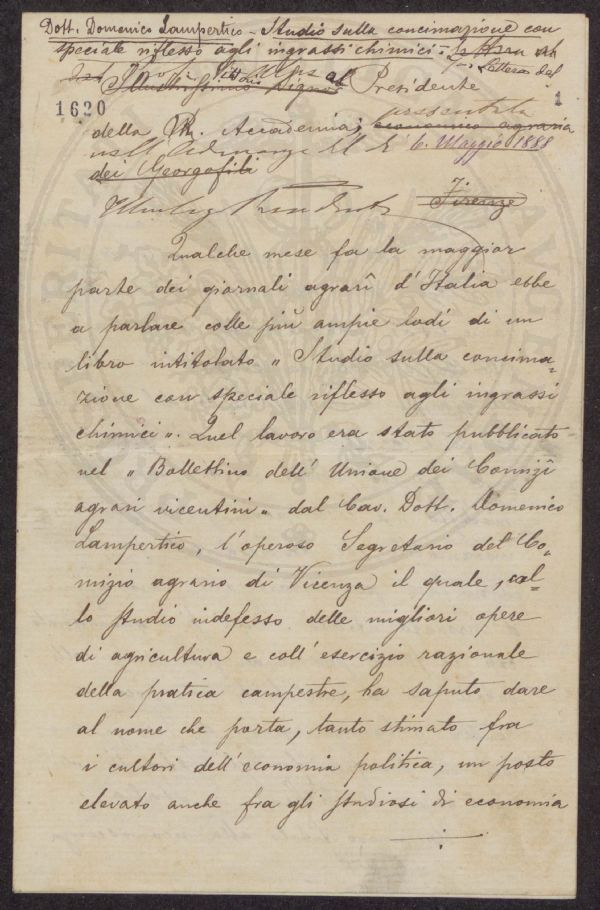 Dott. Domenico Lampertico - Studio sulla concimazione con
speciale riflesso agli ingrassi chimici -
Lettera del
Illustrissimo Signor al Presidente
1620
1
della R. Accademia, economico agraria
presentata
nell'Adunanza del 6. Maggio 1888
dei Georgofili
Firenze
Qualche mese fa la maggior
parte dei giornali agrarî d'Italia ebbe
a parlare colle più ampie lodi di un
libro intitolato „ Studio sulla concima-
zione con speciale riflesso agli ingrassi
chimici „. Quel lavoro era stato pubblicato
nel „ Bollettino dell' Unione dei Comizî
agrari vicentini „ dal Cav. Dott. Domenico
Lampertico, l'operoso Segretario del Co-
mizio agrario di Vicenza il quale, col-
lo studio indefesso delle migliori opere
di agricultura e coll' esercizio razionale
della pratica campestre, ha saputo dare
al nome che porta, tanto stimato fra
i cultori dell'economia politica, un posto
elevato anche fra gli studiosi di economia